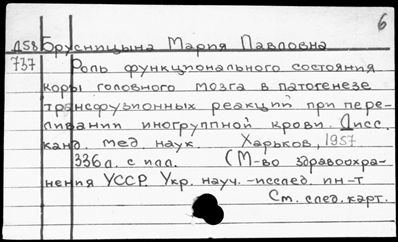 6
Д58 Брусницына Мария Павловна
737 Роль функционального состояния
коры головного мозга в патогенезе
трансфузионных реакций при пере-
ливании иногруппной крови. Дисс.
канд. мед. наук. Харьков, 1957
336л. с илл. (М-во здравоохра-
нения УССР. Укр. науч.-исслед. ин-т
См. след. карт.